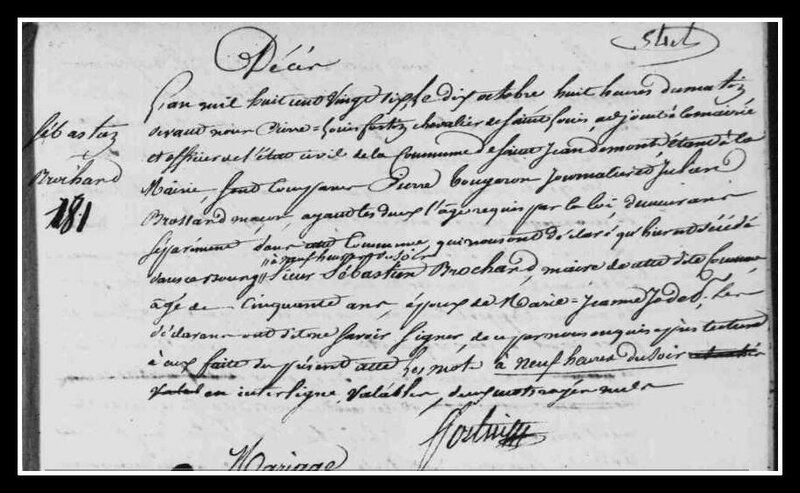 Décès
L'an mil huit cent vingt six le dix octobre huit heures du matin
devant nous Pierre-Louis Fortin chevalier de Saint Louis, adjoint à la mairie
et officier de l'état civil de la Commune de Saint Jean de mont étant à la
Mairie, sont comparus Pierre Cougeron journalier et Julien
Brossard maçon, ayant les deux l'âge requis par la loi demeurans
séparément dans cette Commune, qui nous ont déclaré qu'hier est décédé
à neuf heures du soir
dans ce Bourg sieur Sébastien Brochard, maire de cette dite Commune
âgé de Cinquante ans, époux de Marie-Jeanne Jodet, les
déclarans ont dit ne savoir signer, de ce par nous enquis après lecture
à eux faite du présent acte les mots à neuf heures du soir
en interligne valables, deux mots rayés nuls
Fortin
Sébastien
Brochard
181
Mariage